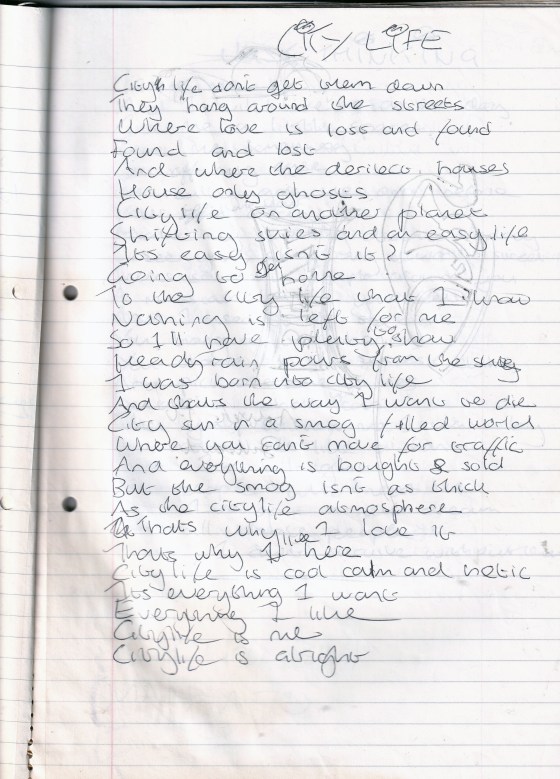 CITY LIFE
City life dont get them down
They hang around the streets
Where love is lost and found
Found and lost
And where the derilect houses
House only ghosts
Citylife on another planet
Shifting skies and an easy life
Its easy isn't it?
Going to get home
To the city life what I know
Nothing is left for me
So I'll have plenty to show
Heavy rain pours from the sky
I was born into city life
And thats the way I want to die
City sun in a smog filled world
Where you cant move for traffic
And everything is bought & sold
But the smog isnt as thick
As the citylife atmosphere
Thats why I love it
Thats why I live here
City life is cool calm and hetic
Its everything I want
Everything I like
Citylife is me
Citylife is alright